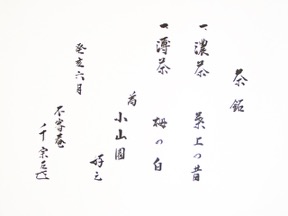 茶銘
一、濃茶 葉上の昔
一、薄茶 梅の白
為
小山園
好之
癸亥六月
不審菴
千宗左